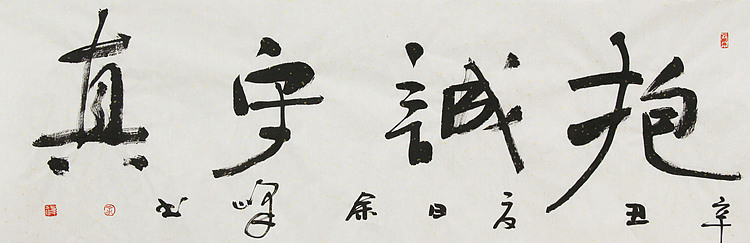 抱誠守真
辛丑夏日余峰书